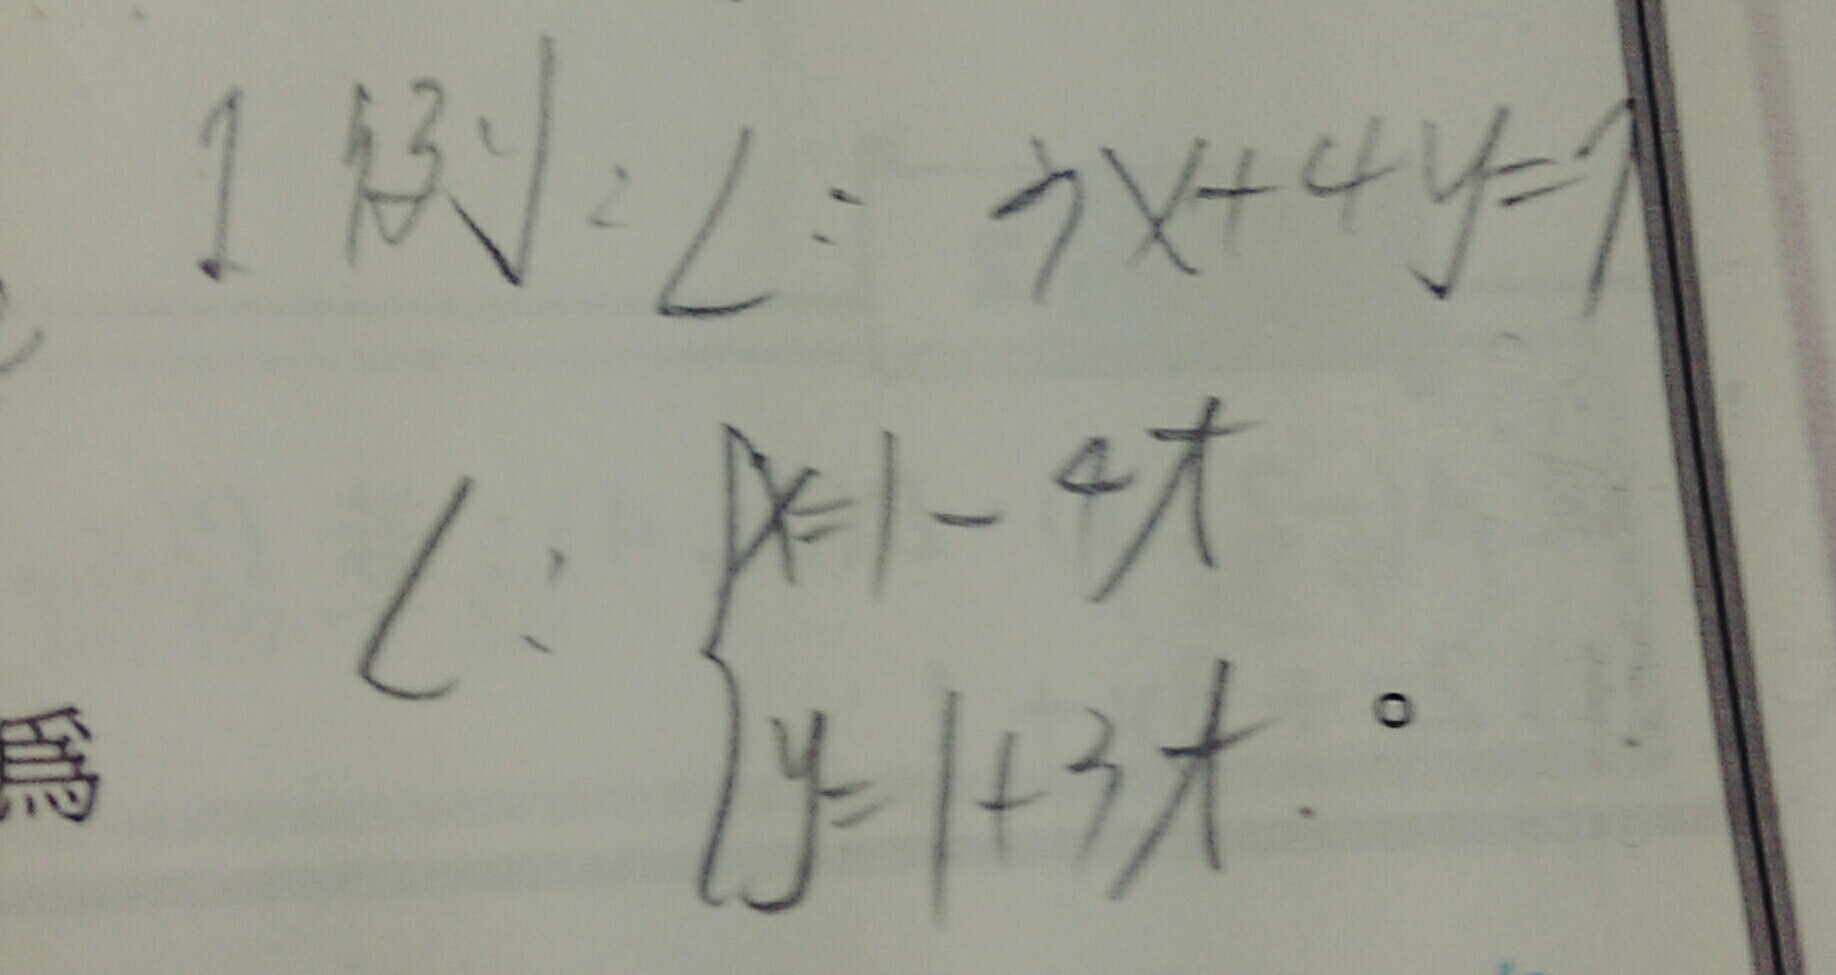 1 例: L: 3x+4y=7
L: { x=1-4t
y=1+3t.。
為